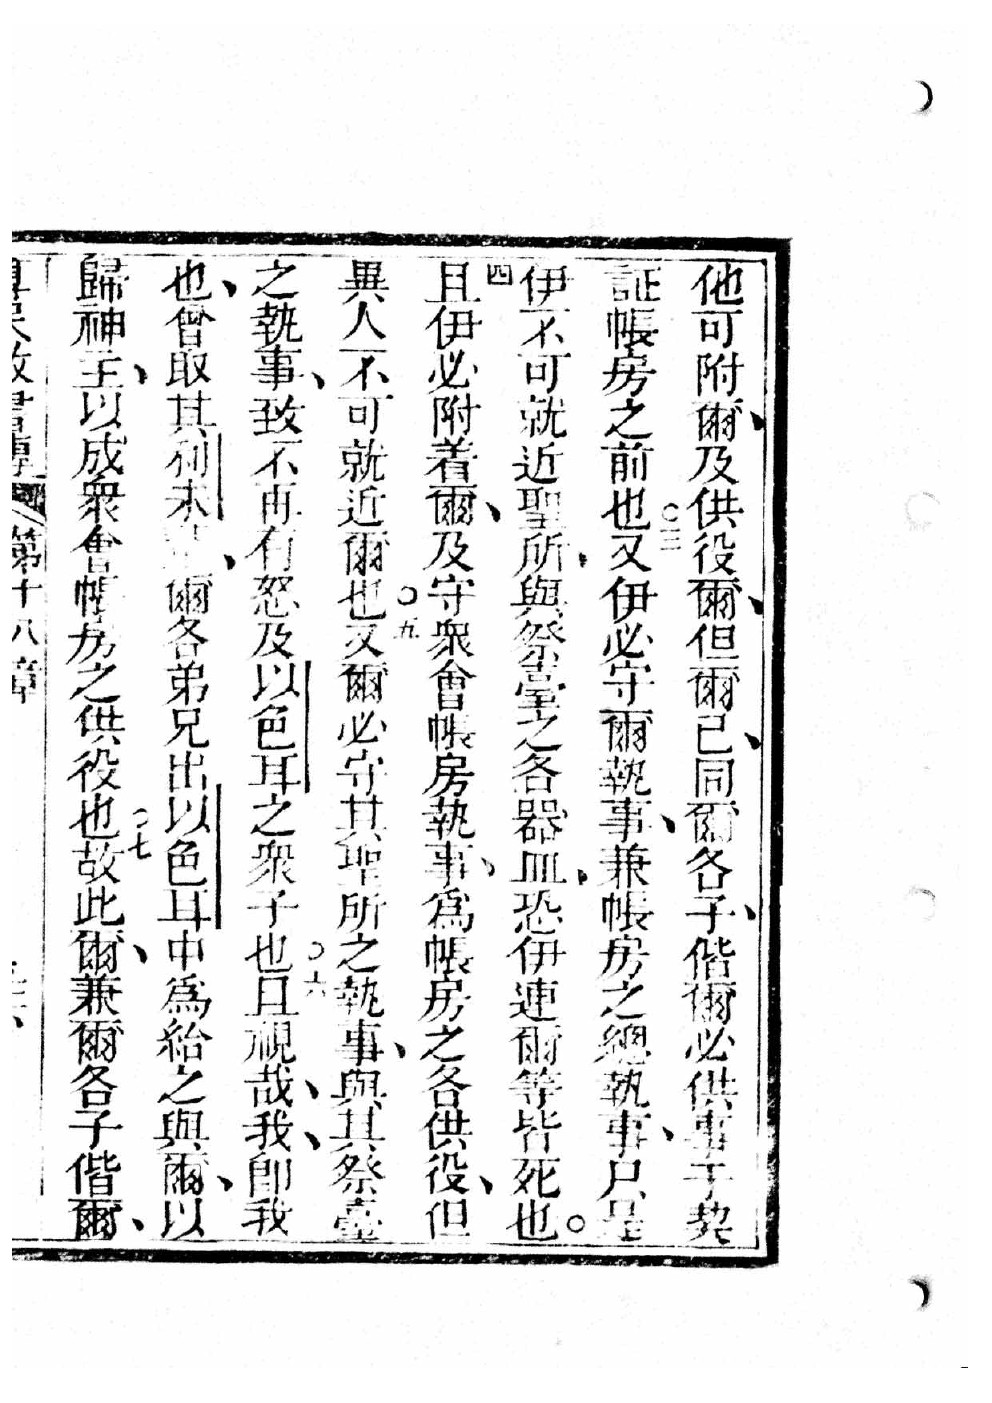 他可附爾、及供役爾、但爾已、同爾各子、偕爾必供事于契
証帳房之前也○三又伊必守爾執事、兼帳房之總執事、尸是
伊不可就近聖所、與祭臺之各器皿、恐伊連爾等皆死也○
四且伊必附着爾、及守衆會帳房執事、爲帳房之各供役、但
異人不可就近爾也○五又爾必守其聖所之執事、與其祭臺
之執事、致不再有怒及以色耳之衆子也○六且視哉、我、卽我
也、曾取其利未爾各弟兄出以色耳中爲給之與爾、以
歸神主、以成衆會帳房之供役也○七故此爾、兼爾各子偕爾、
書傳 第十八章